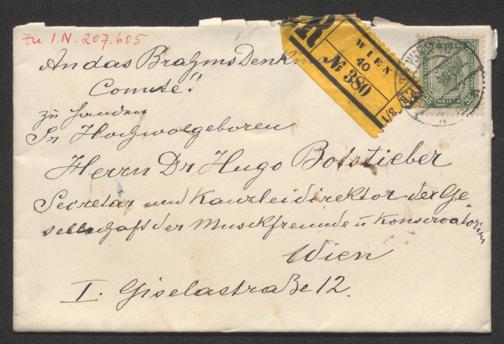 Zu I.N. 207.605
An das Brahms Denkm
Comité!
zu Handen
Sr Hochwolgeboren
Herrn Dr Hugo Botstieber
Secretar und Kanzleidirektor der Ge-
sellschaft der Musikfreunde u Konservatorium
Wien
I. Giselastraße 12.
R
WIEN
40
№ 380
1/8
35
35